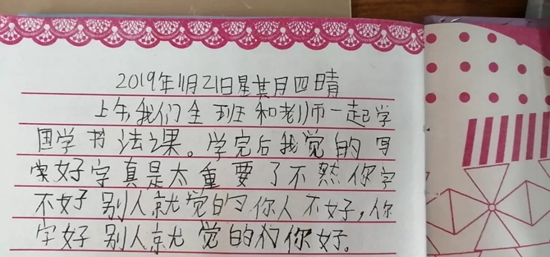 2019年11月21日星其月四晴
上午我们全班和老师一起学
国学书法课。学完后我觉的写
字好字真是太重要了不然你字
不好别人就觉的你人不好,你
字好别人就觉的你好。